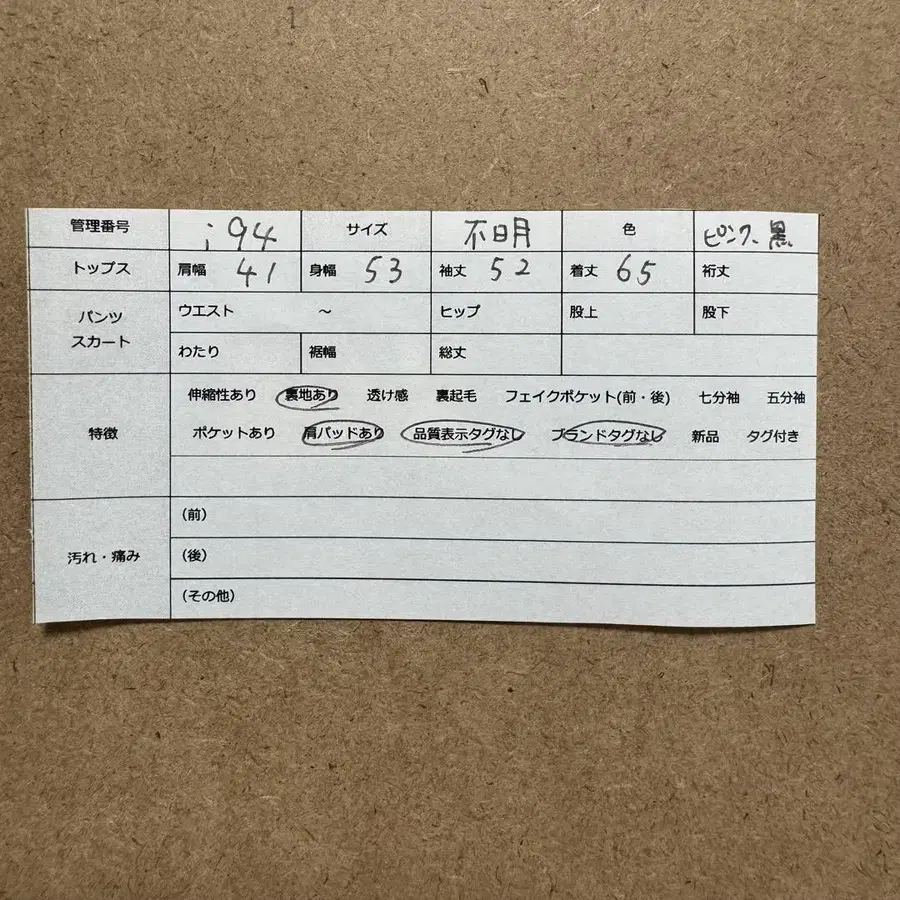 管理番号 i94 サイズ 不明 色 ピンク、黒
トップス 肩幅 41 身幅 53 袖丈 52 着丈 65 裄丈
パンツ スカート ウエスト ～ ヒップ 股上 股下
わたり 裾幅 総丈
特徴 伸縮性あり 裏地あり 透け感 裏起毛 フェイクポケット(前・後) 七分袖 五分袖
ポケットあり 肩パッドあり 品質表示タグなし ブランドタグなし 新品 タグ付き
汚れ・痛み (前)
(後)
(その他)